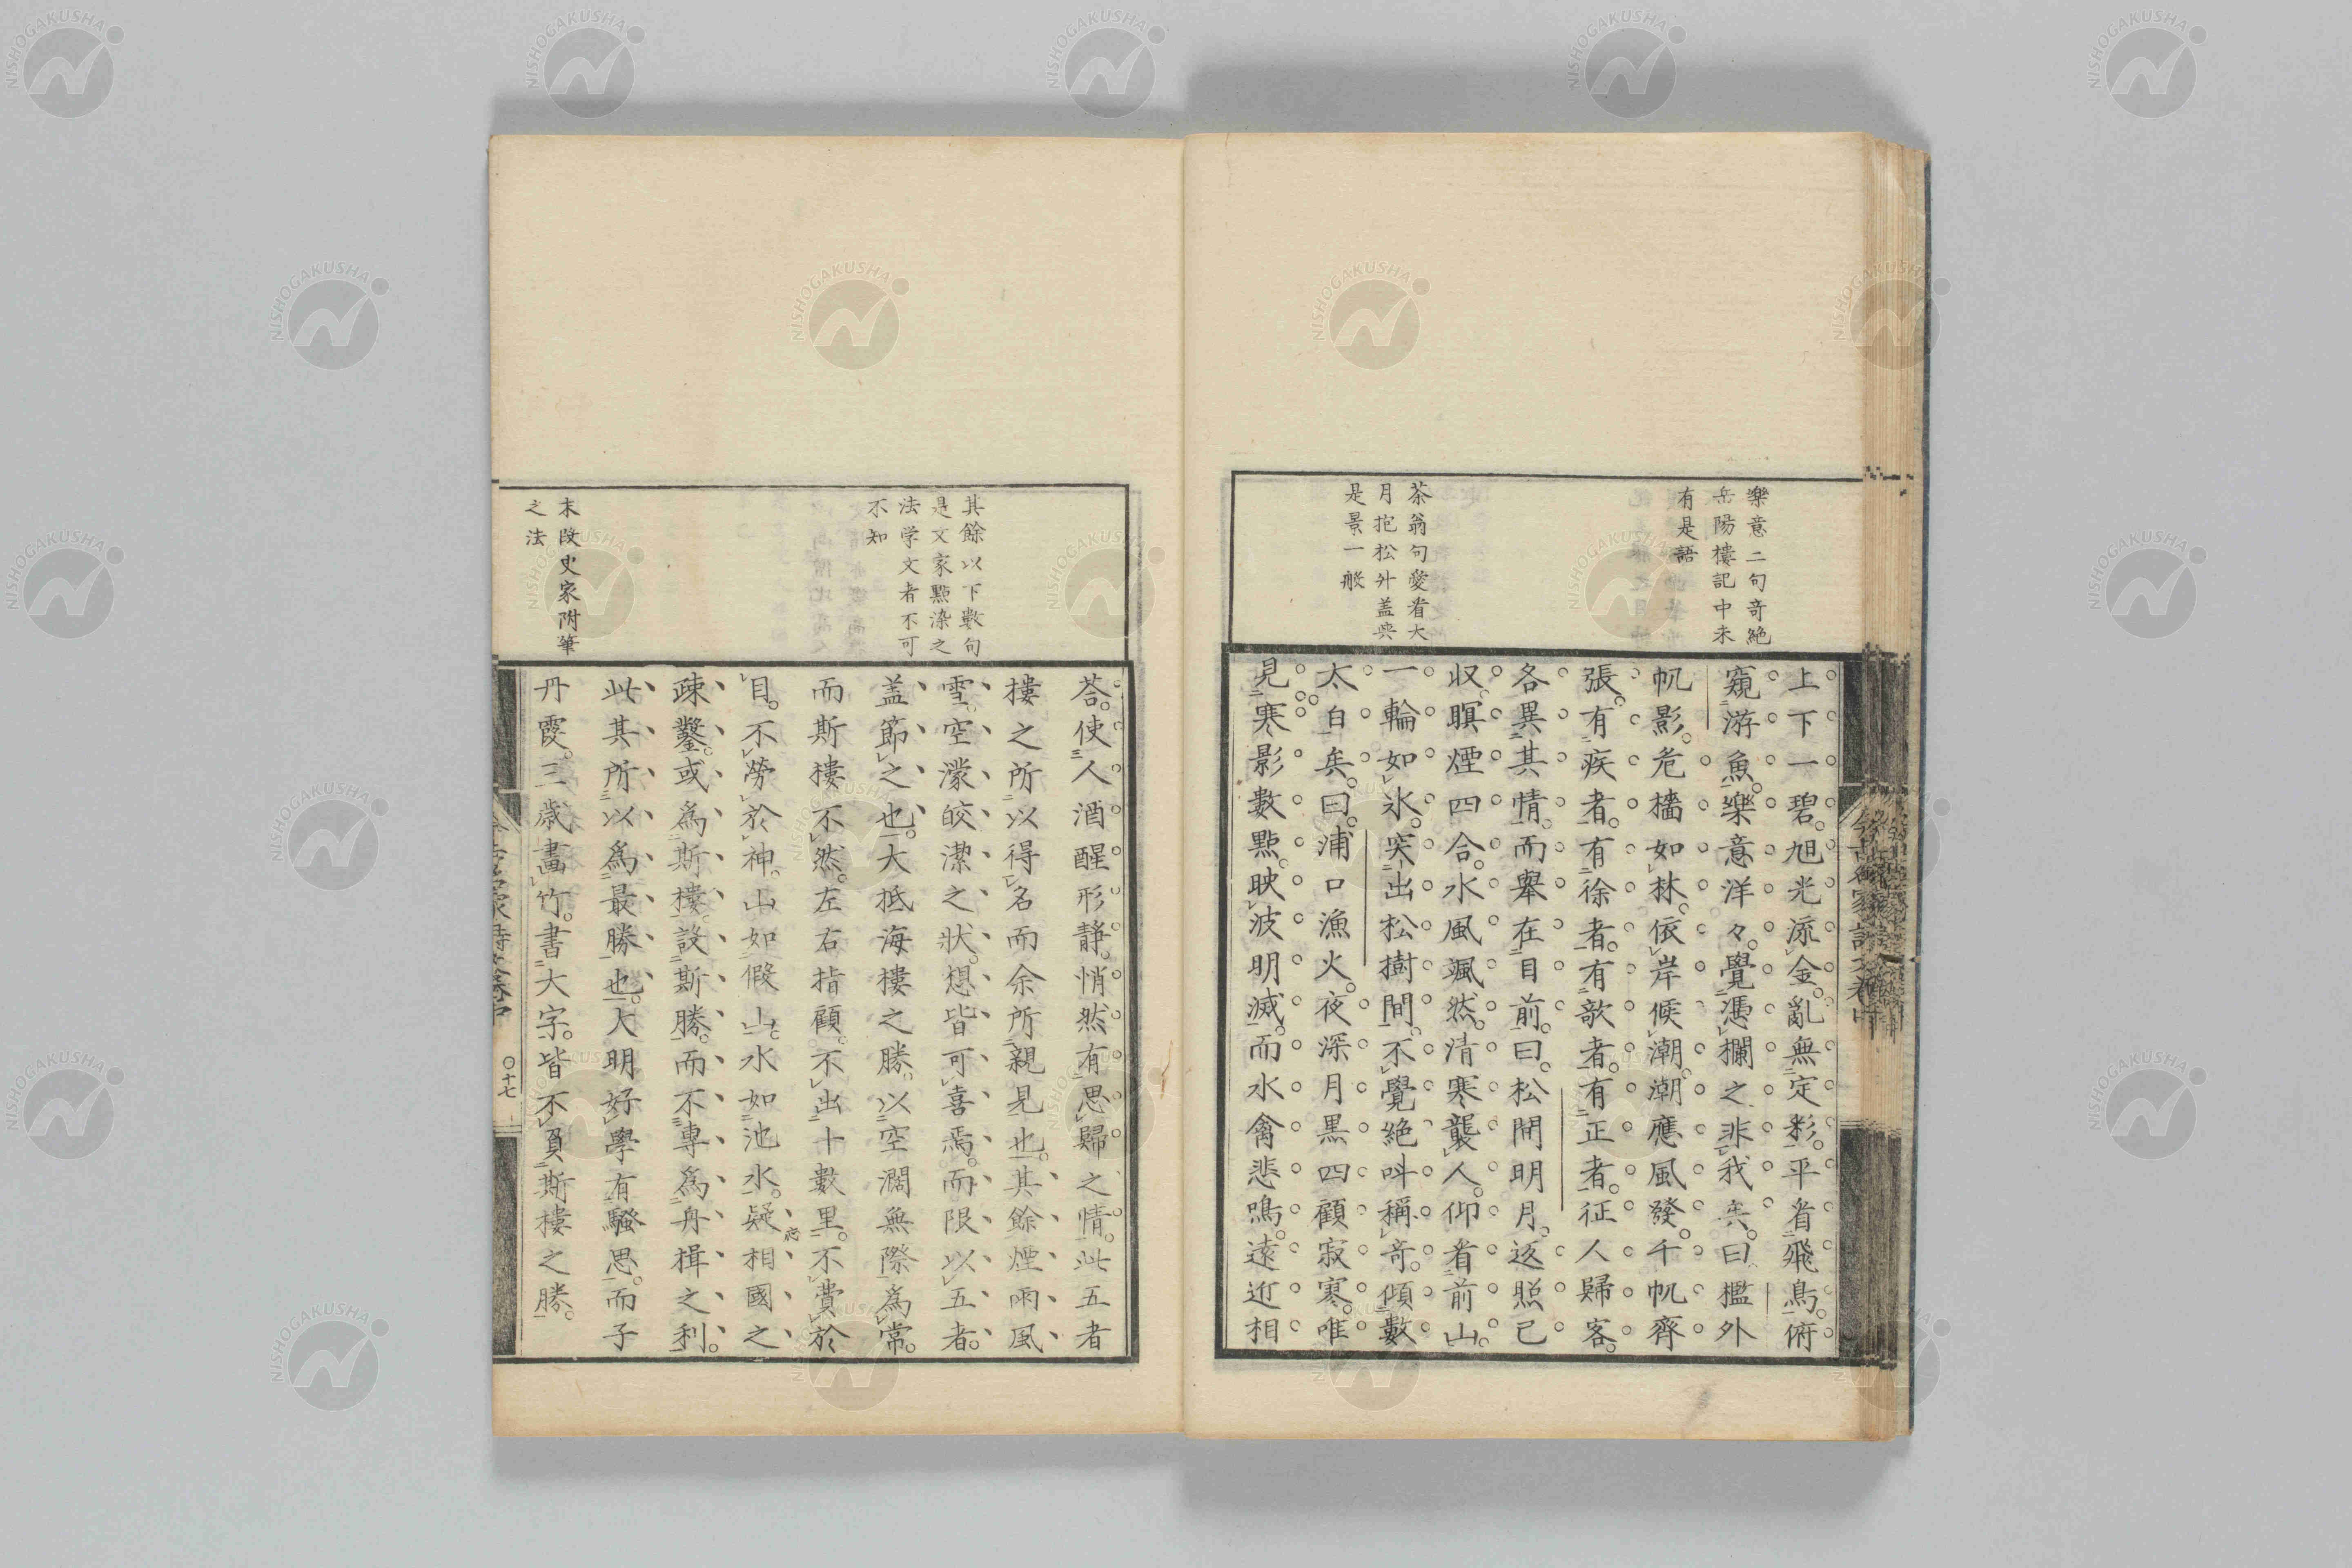 樂意二句奇絶
岳陽樓記中未
有是語
茶翁句愛看大
月抱松外盖與
是景一般
上下一碧。旭光流金。亂無定彩。平看飛鳥。俯
窺游魚。樂意洋々。覺憑欄之非我矣。曰檻外
帆影。危檣如林。依岸候潮。潮應風發。千帆齊
張。有疾者。有徐者。有歌者。有正者。征人歸客。
各異其情。而舉在目前。曰。松間明月。返照已
収。暝煙四合。水風颯然。清寒襲人。仰看前山。
一輪如氷。突出松樹間。不覺絶叫稱奇。傾數
太白矣。曰。浦口漁火。夜深月黒。四顧寂寒。唯
見寒影數點。映波明滅。而水禽悲鳴。遠近相
今古名家詩文卷中
其餘以下數句
是文家點染之
法学文者不可
不知
末段史家附筆
之法
荅。使人酒醒形静。悄然有思歸之情。此五者
樓之所以得名而余所親見也。其餘煙雨風
雪。空濛皎潔之狀。想皆可喜焉。而限以五者。
盖節之也。大抵海樓之勝。以空濶無際為常。
而斯樓不然。左右指顧。不出十數里。不費於
目。不勞於神。山如假山。水如池水。疑相國之
疎鑿。或為斯樓設斯勝。而不專為舟楫之利。
此其所以為最勝也。大明好學有騷思。而子
丹霞。三歳畫竹。書大字。皆不負斯樓之勝。
〇十七
NISHOGAKUSHA